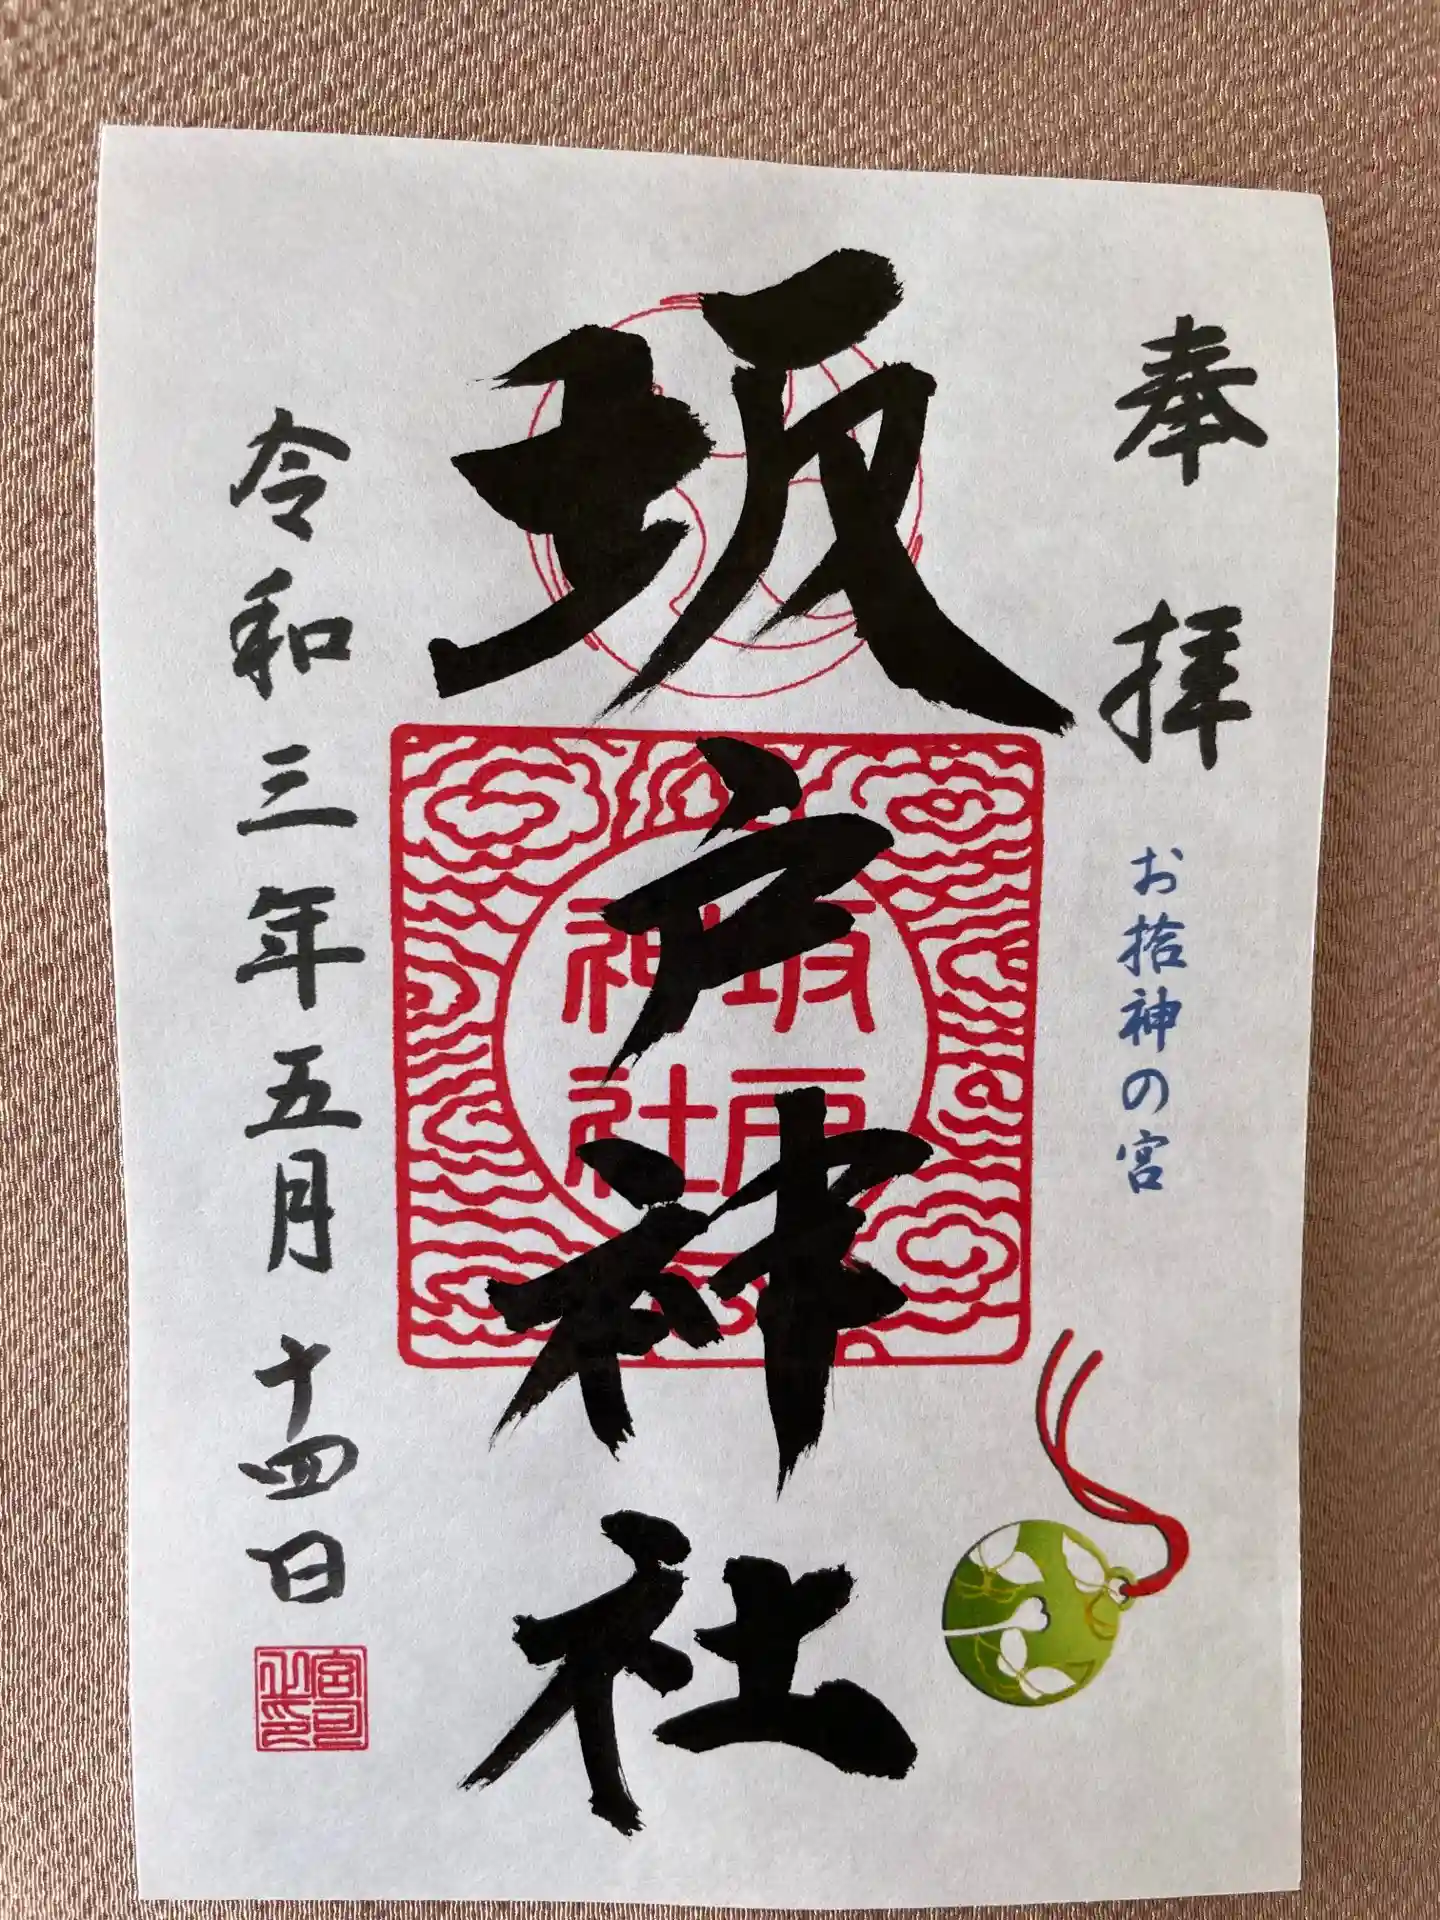 奉拝
お拾神の宮
坂戸神社
坂戸
神社
令和三年五月十四日
宮司
之印